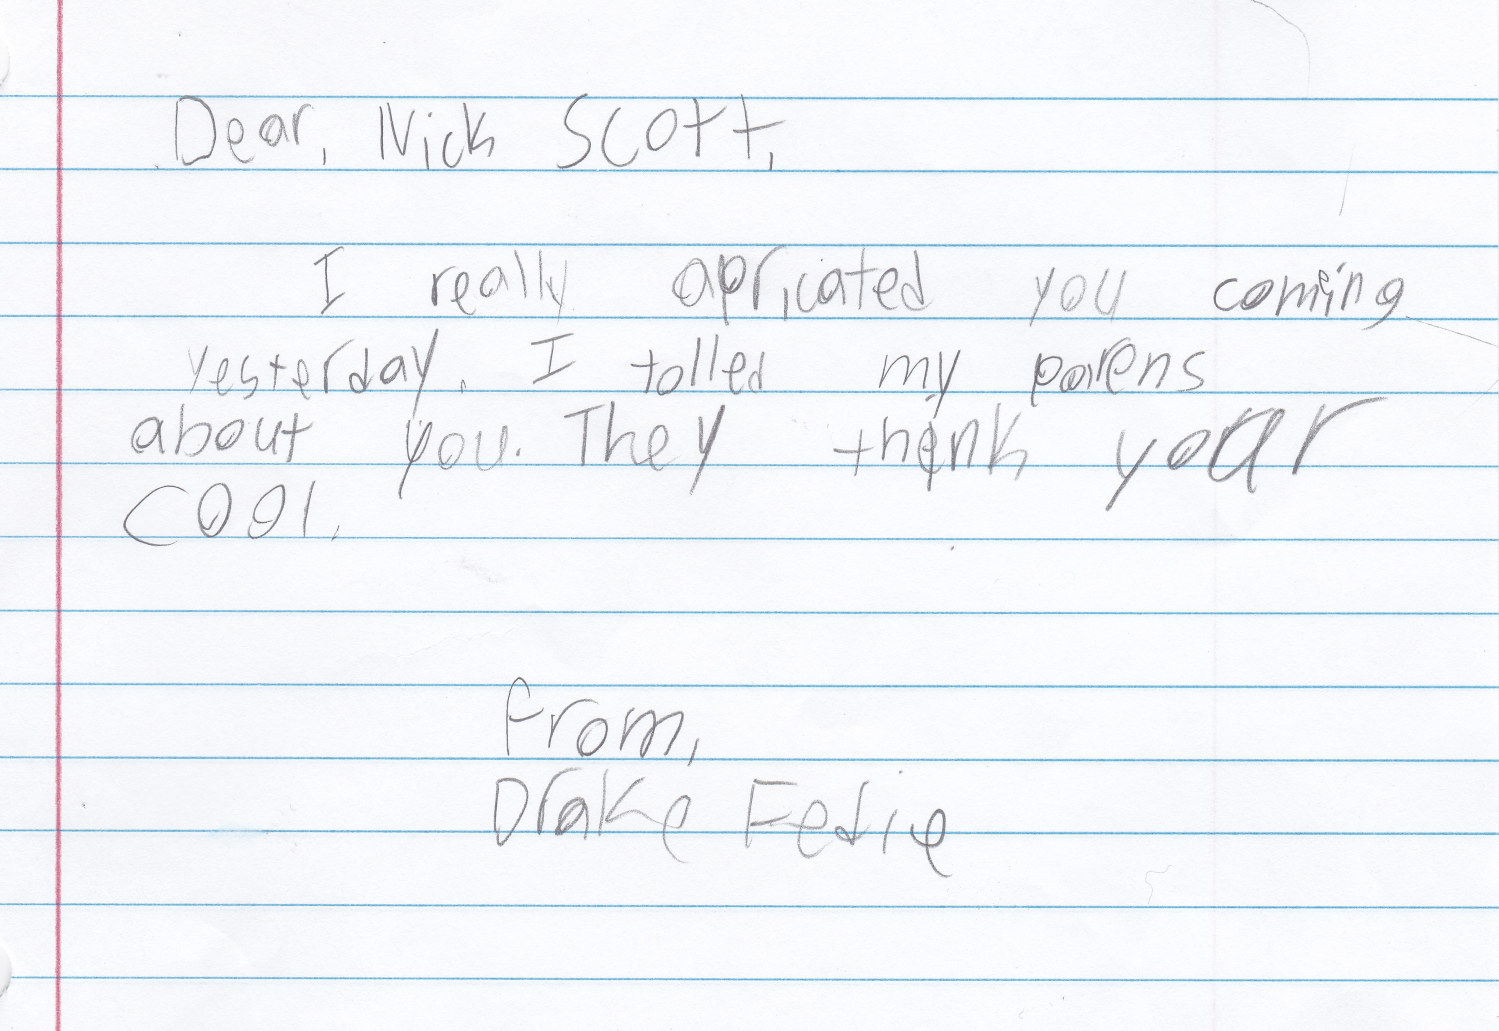 Dear, Nick Scott,
I really apricated you coming
yesterday. I tolled my parens
about you. They think your
cool.
from,
Drake Fedie